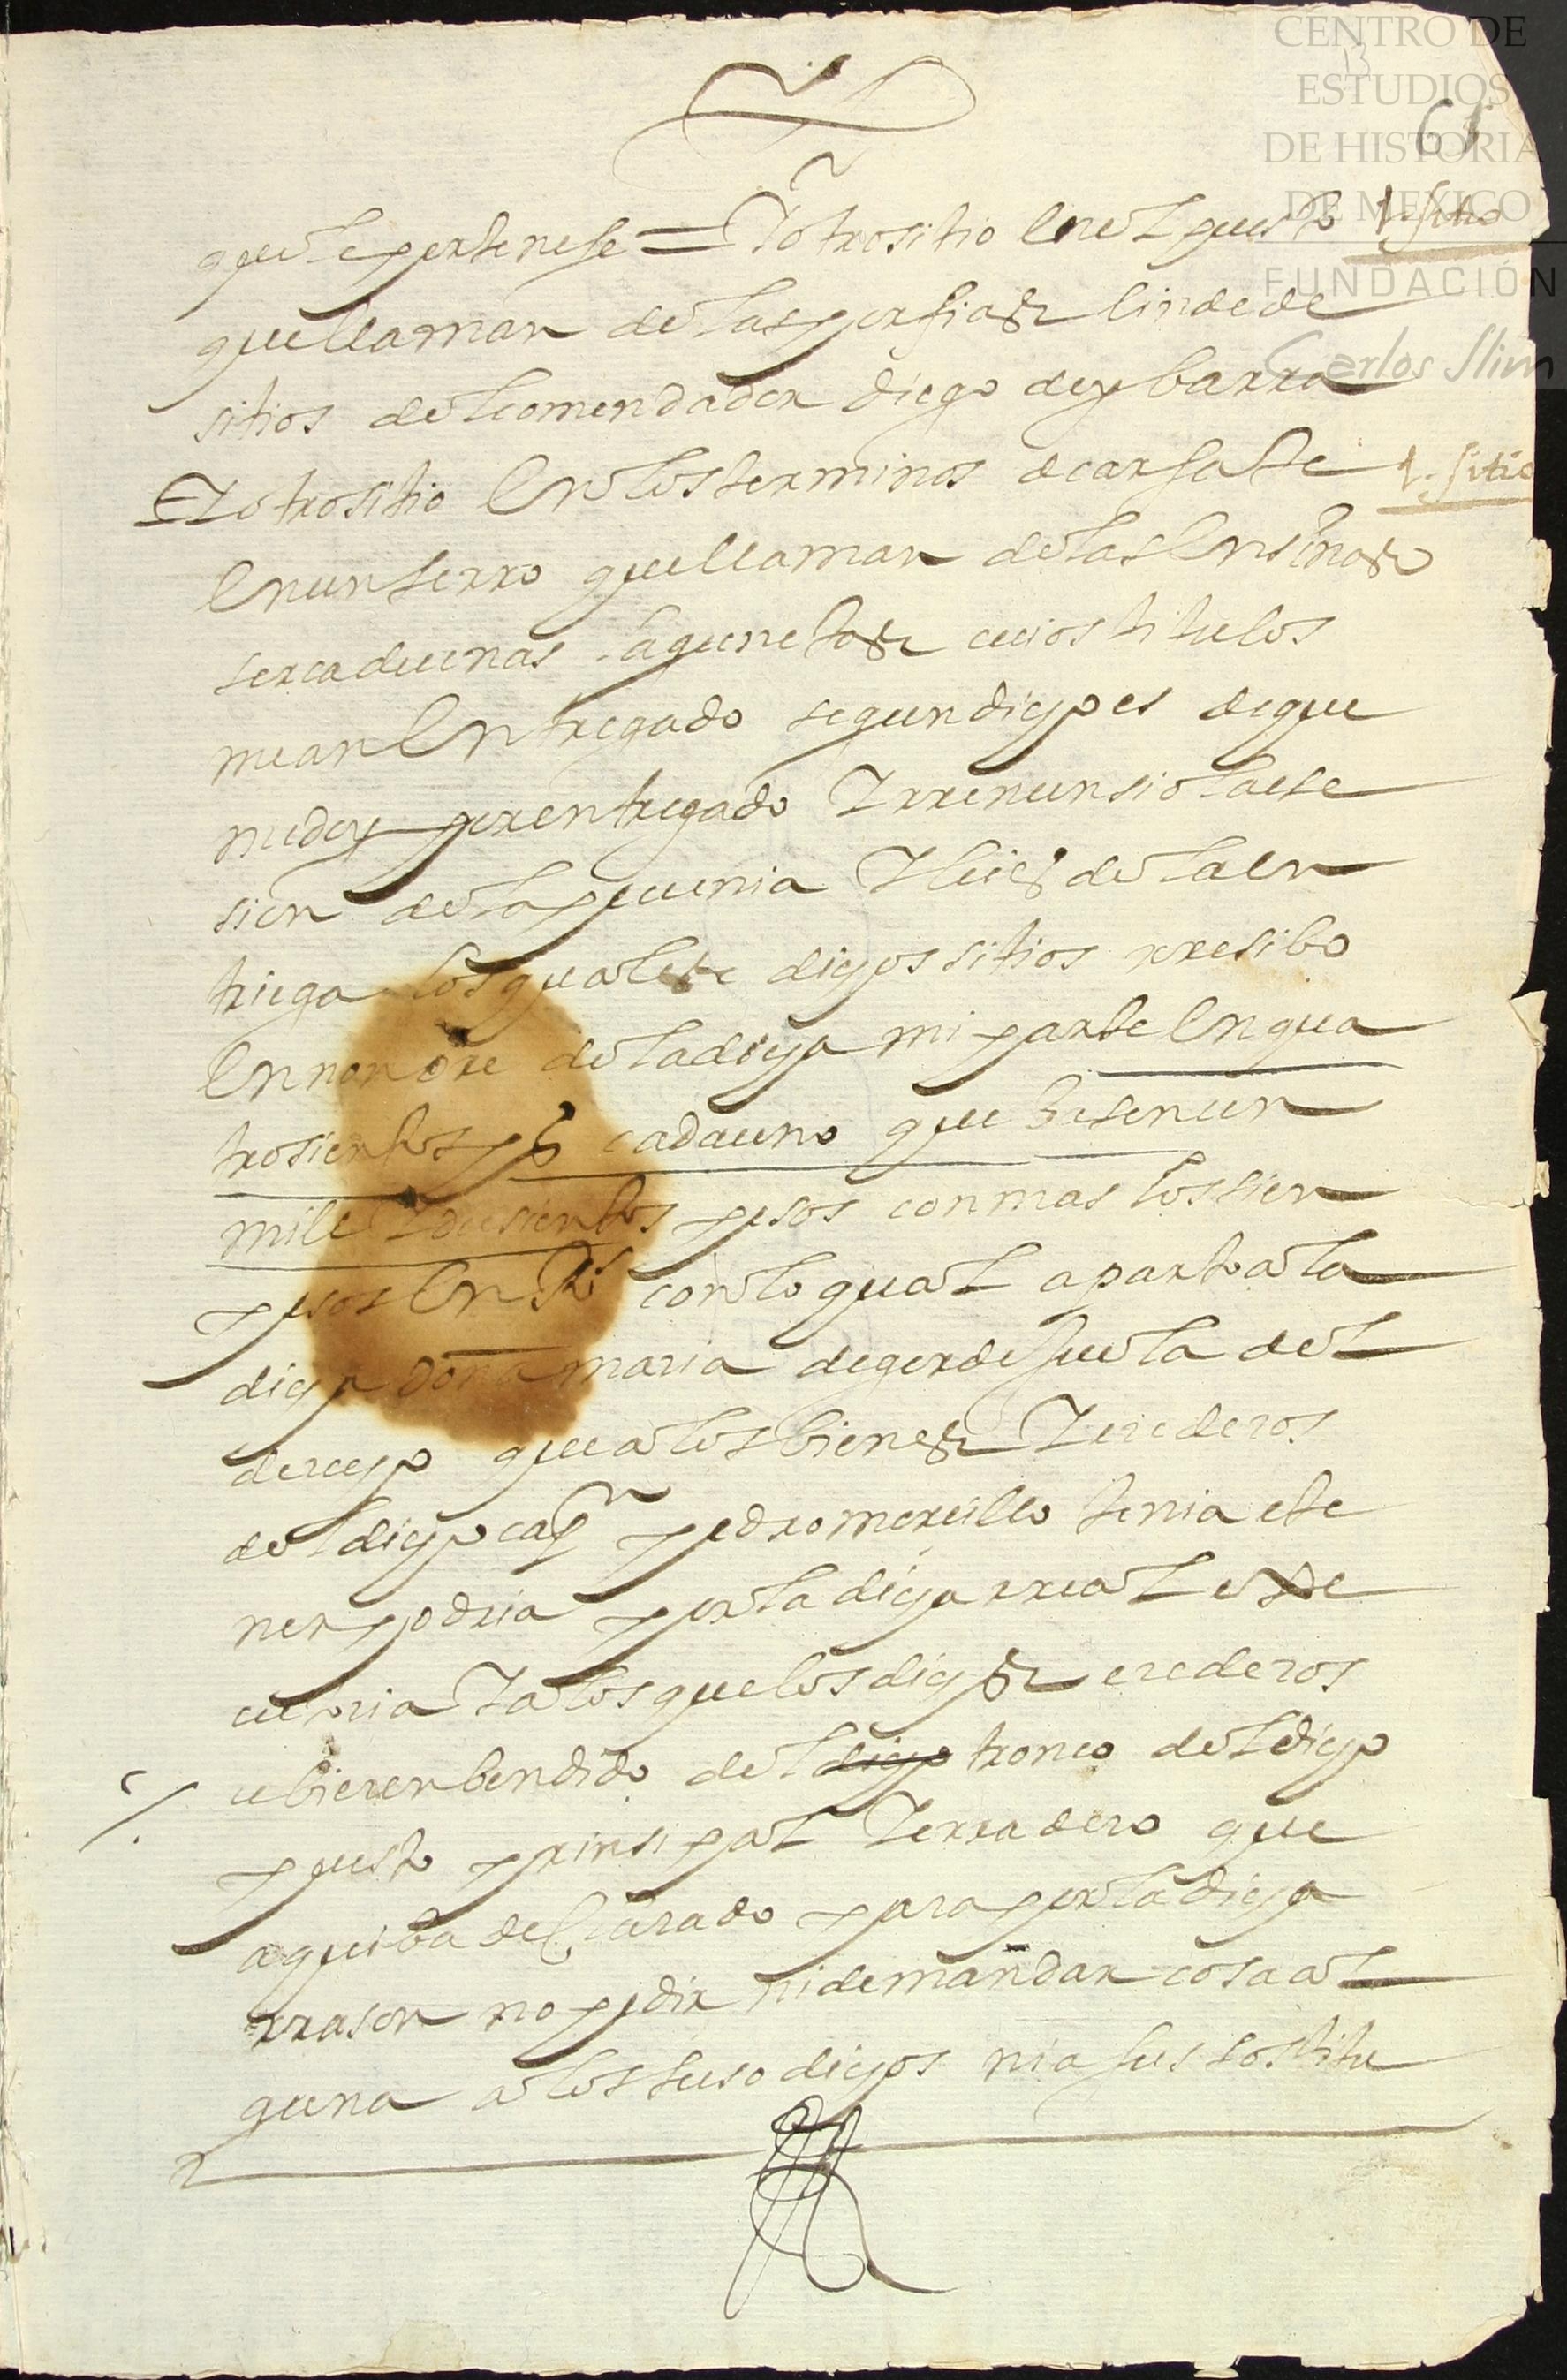 CENTRO DE
ESTUDIOS
DE HISTORIA
DE MEXICO
FUNDACIÓN
Carlos Slim
13
61
que le pertenese = Y otro sitio en el puesto 1. sitio
que llaman de las porfias linde de
sitios del comendador diego de ybarra
Y otro sitio en los terminos de 1. sitio
en un serro que llaman de las ensinas
serca de unas lagunetas cuios titulos
me an entregado segun dicho es de que
me doy por entregado Y rrenunsio la ese
sion de la pecunia Y leies de la en
triega los quales dichos sitios rresibo
en nonbre de la dicha mi parte en qua
trosientos ps cada uno que hasen un
mill Y dusientos pesos con mas los sien
pesos en Rs con lo qual aparto a la
dicha doña maria de del
derecho que a los bienes Y erederos
del dicho capn pedro morcillo tenia e te
ner podria por la dicha rreal
utoria Y a los que los dichos erederos
ubieren bendido del dicho tronco del dicho
puesto prinsipal Y erradero que
aqui ba declarado para por la dicha
rrason no pedir ni demandar cosa al
guna a los suso dichos ni a sus sostitu